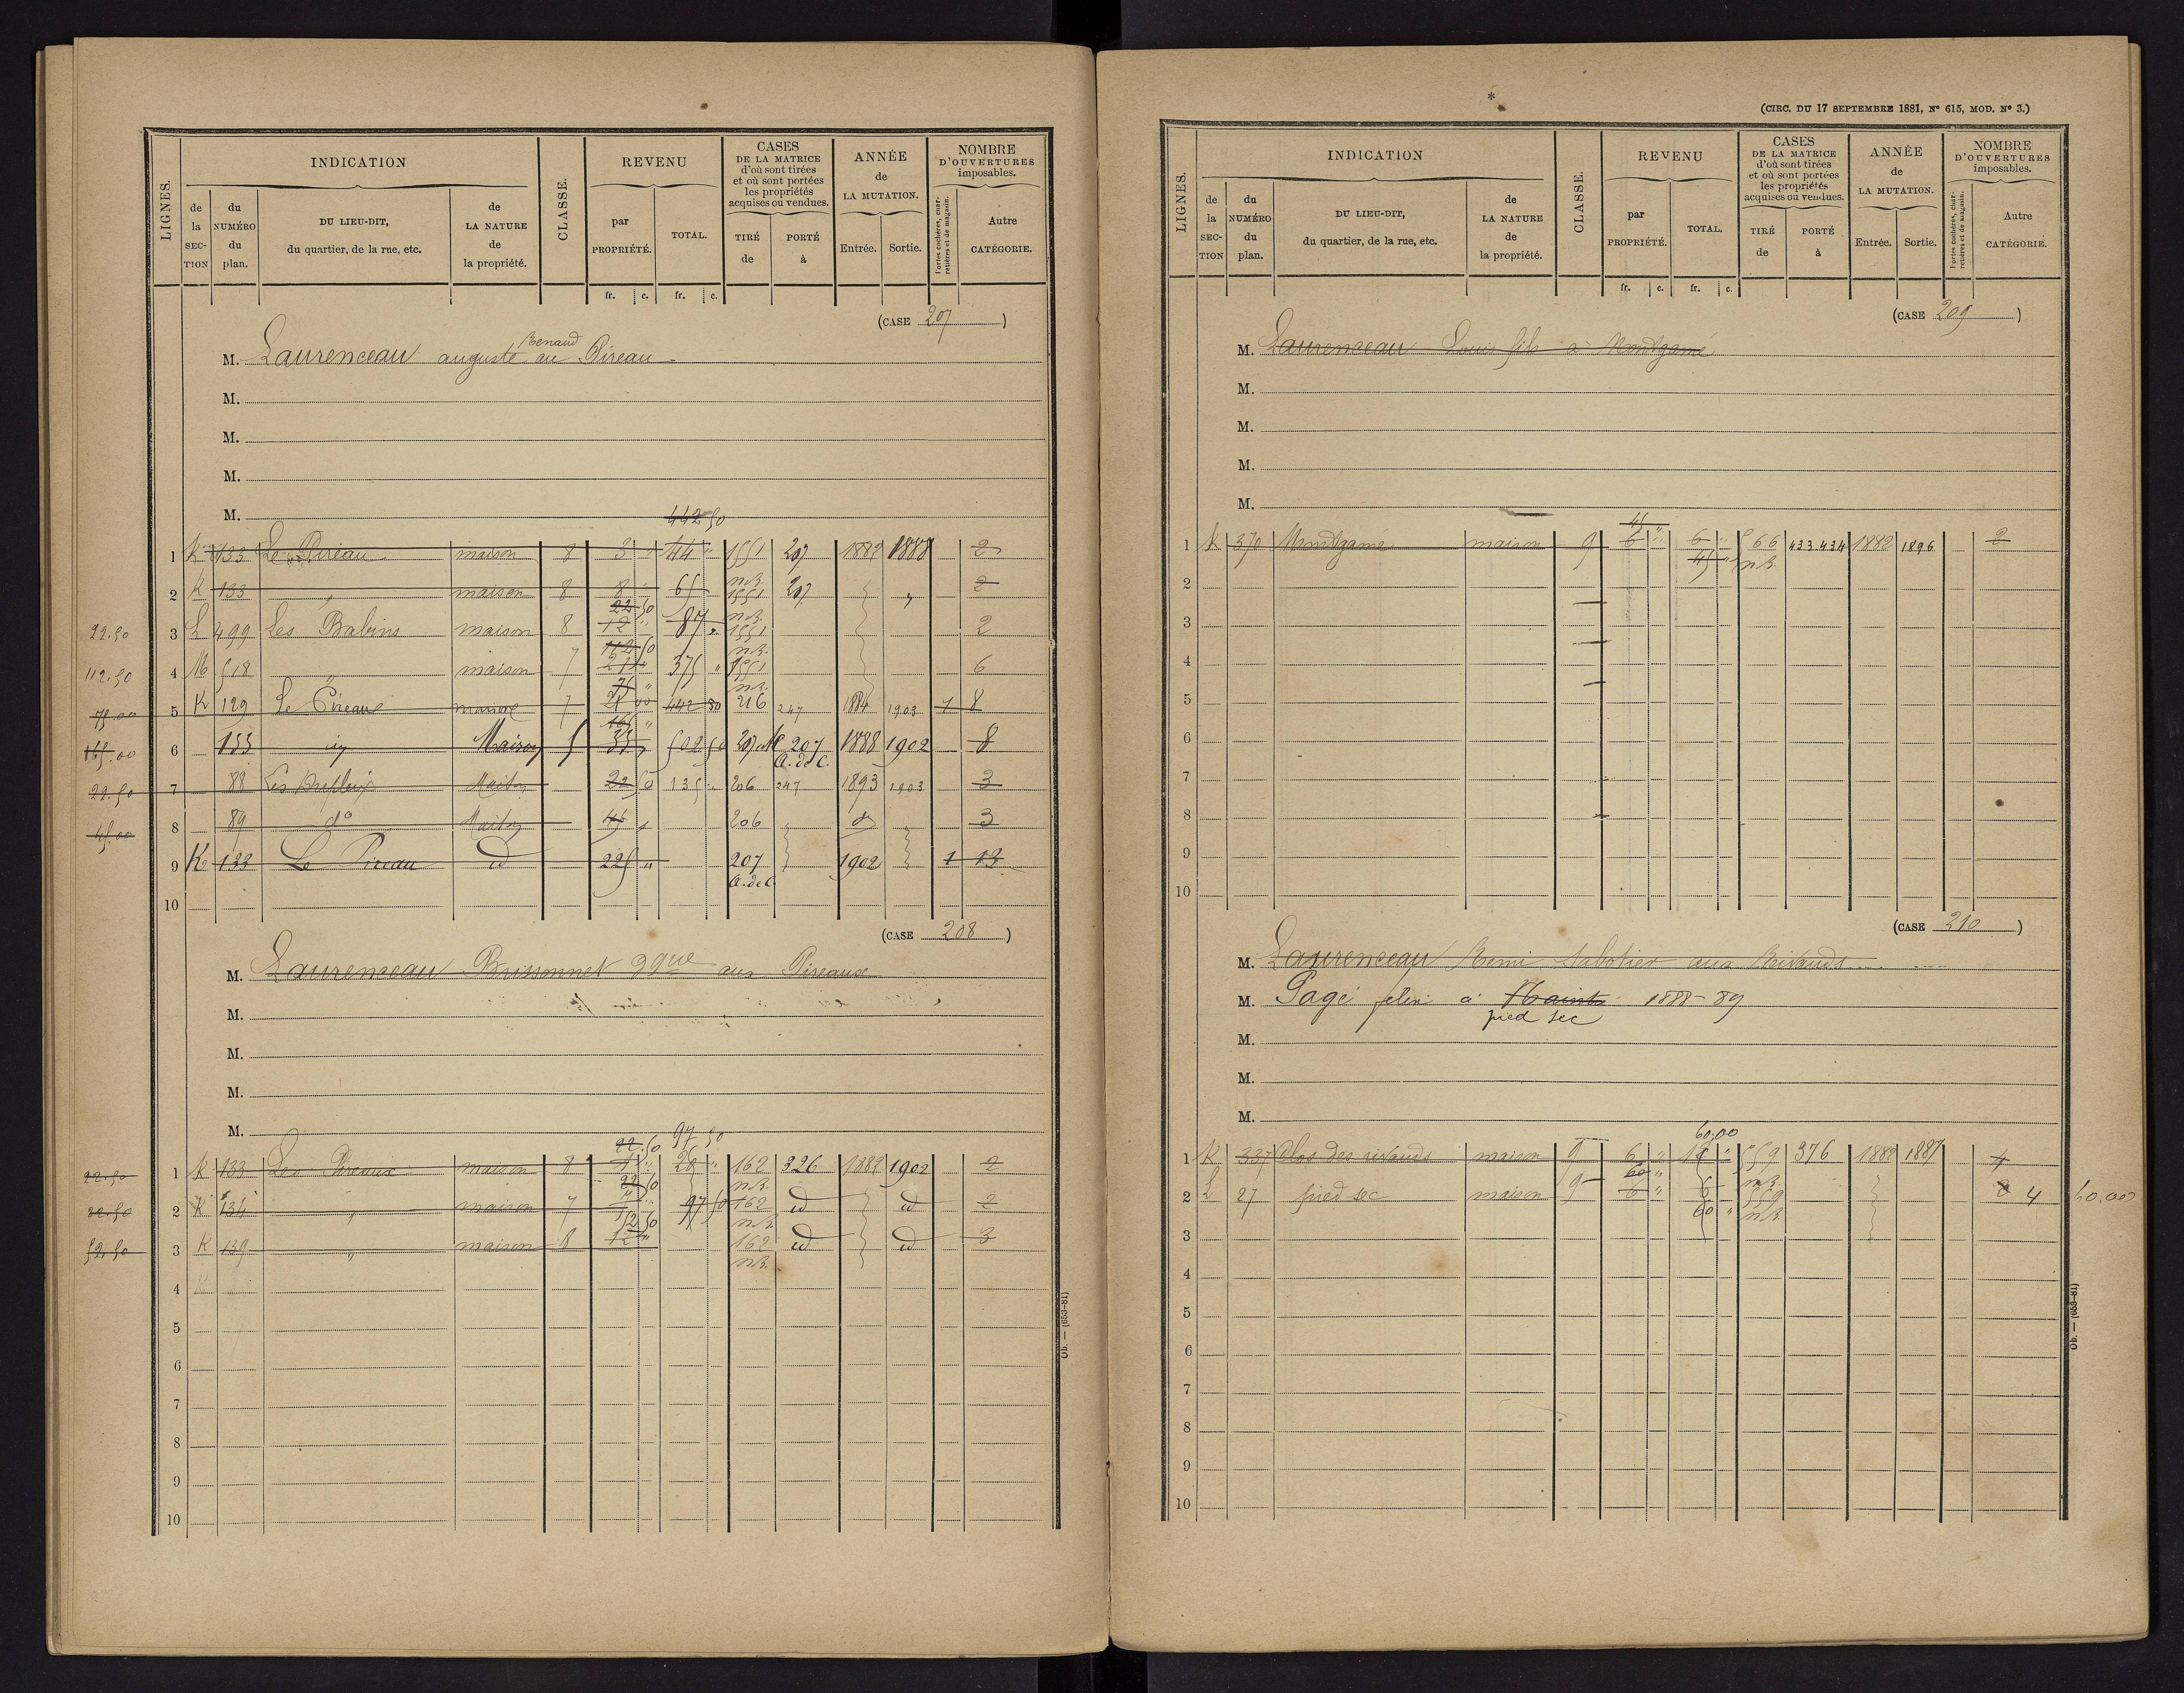 LIGNES.
INDICATION
de la SECTION
du NUMÉRO du plan.
DU LIEU-DIT, du quartier, de la rue, etc.
de LA NATURE de la propriété.
CLASSE.
REVENU
par PROPRIÉTÉ.
TOTAL.
CASES DE LA MATRICE d'où sont tirées et où sont portées les propriétés acquises ou vendues.
TIRÉ de
PORTÉ à
ANNÉE de LA MUTATION.
Entrée.
Sortie.
NOMBRE D'OUVERTURES imposables.
Portes cochères, charretières et de magasin.
Autre CATÉGORIE.
fr. c. fr. c.
(CASE 207)
Renaud
M. Laurenceau auguste au Pireau
M.
M.
M.
M.
442 50
1 K 133 Le Pireau maison 8 3 44 " 1551 207 1882 1888 2
n.R.
2 K 133 " maison 8 8 " 65 1551 207 " 2
22 50 n.R.
22.50 3 L 499 Les Babins maison 8 12 " 87 " 1551 2
112 50 n.R.
112.50 4 M 518 " maison 7 21 " 375 " 1551 6
75 " n.R.
75.00 5 K 129 Le Pireau maison 7 21 00 442 50 216 247 1884 1903 1 8
165 "
165.00 6 133 Maison 5 33 " 502 50 207 207 1888 1902 8
A. de C.
22.50 7 88 Maison 22 50 135 " 206 247 1893 1903 3
45.00 8 89 do Maison 45 " 206 " do " 3
9 K 133 Le Pireau id 225 " 207 1902 1 13
A. de C.
10
(CASE 208)
M. Laurenceau Brissonnet aux Pireaux
M.
M.
M.
M.
22.50 97 50
22.50 1 K 133 Les Pireaux maison 8 4 " 26 " 162 326 1882 1902 2
22 50 n.R.
22.50 2 K 134 " maison 7 97 50 162 id id 2
52 50 n.R.
52.50 3 K 139 " maison 8 12 " 162 id id 3
n.R.
4 K
5
6
7
8
9
10
Ob. — (653-81)
*
(CIRC. DU 17 SEPTEMBRE 1881, N° 615, MOD. N° 3.)
LIGNES.
INDICATION
de la SECTION
du NUMÉRO du plan.
DU LIEU-DIT, du quartier, de la rue, etc.
de LA NATURE de la propriété.
CLASSE.
REVENU
par PROPRIÉTÉ.
TOTAL.
CASES DE LA MATRICE d'où sont tirées et où sont portées les propriétés acquises ou vendues.
TIRÉ de
PORTÉ à
ANNÉE de LA MUTATION.
Entrée.
Sortie.
NOMBRE D'OUVERTURES imposables.
Portes cochères, charretières et de magasin.
Autre CATÉGORIE.
fr. c. fr. c.
(CASE 209)
M. Laurenceau Louis fils à Montgamé
M.
M.
M.
M.
45 "
1 K 370 Montgamé maison 9 6 " 6 " 566 433.434 1882 1896 2
45 " n.R.
2
3
4
5
6
7
8
9
10
(CASE 210)
M. Laurenceau Remi Sabotier aux Rivauds
M. Pagé felix à 1888-89
pied sec
M.
M.
M.
60,00
1 K 337 Clos des rivauds maison 9 6 " 12 " 559 376 1882 1887 4
60 " n.R.
2 L 27 pied sec maison 9 6 " 6 559 4 60.00
60 " n.R.
3
4
5
6
7
8
9
10
Ob. — (653-81)